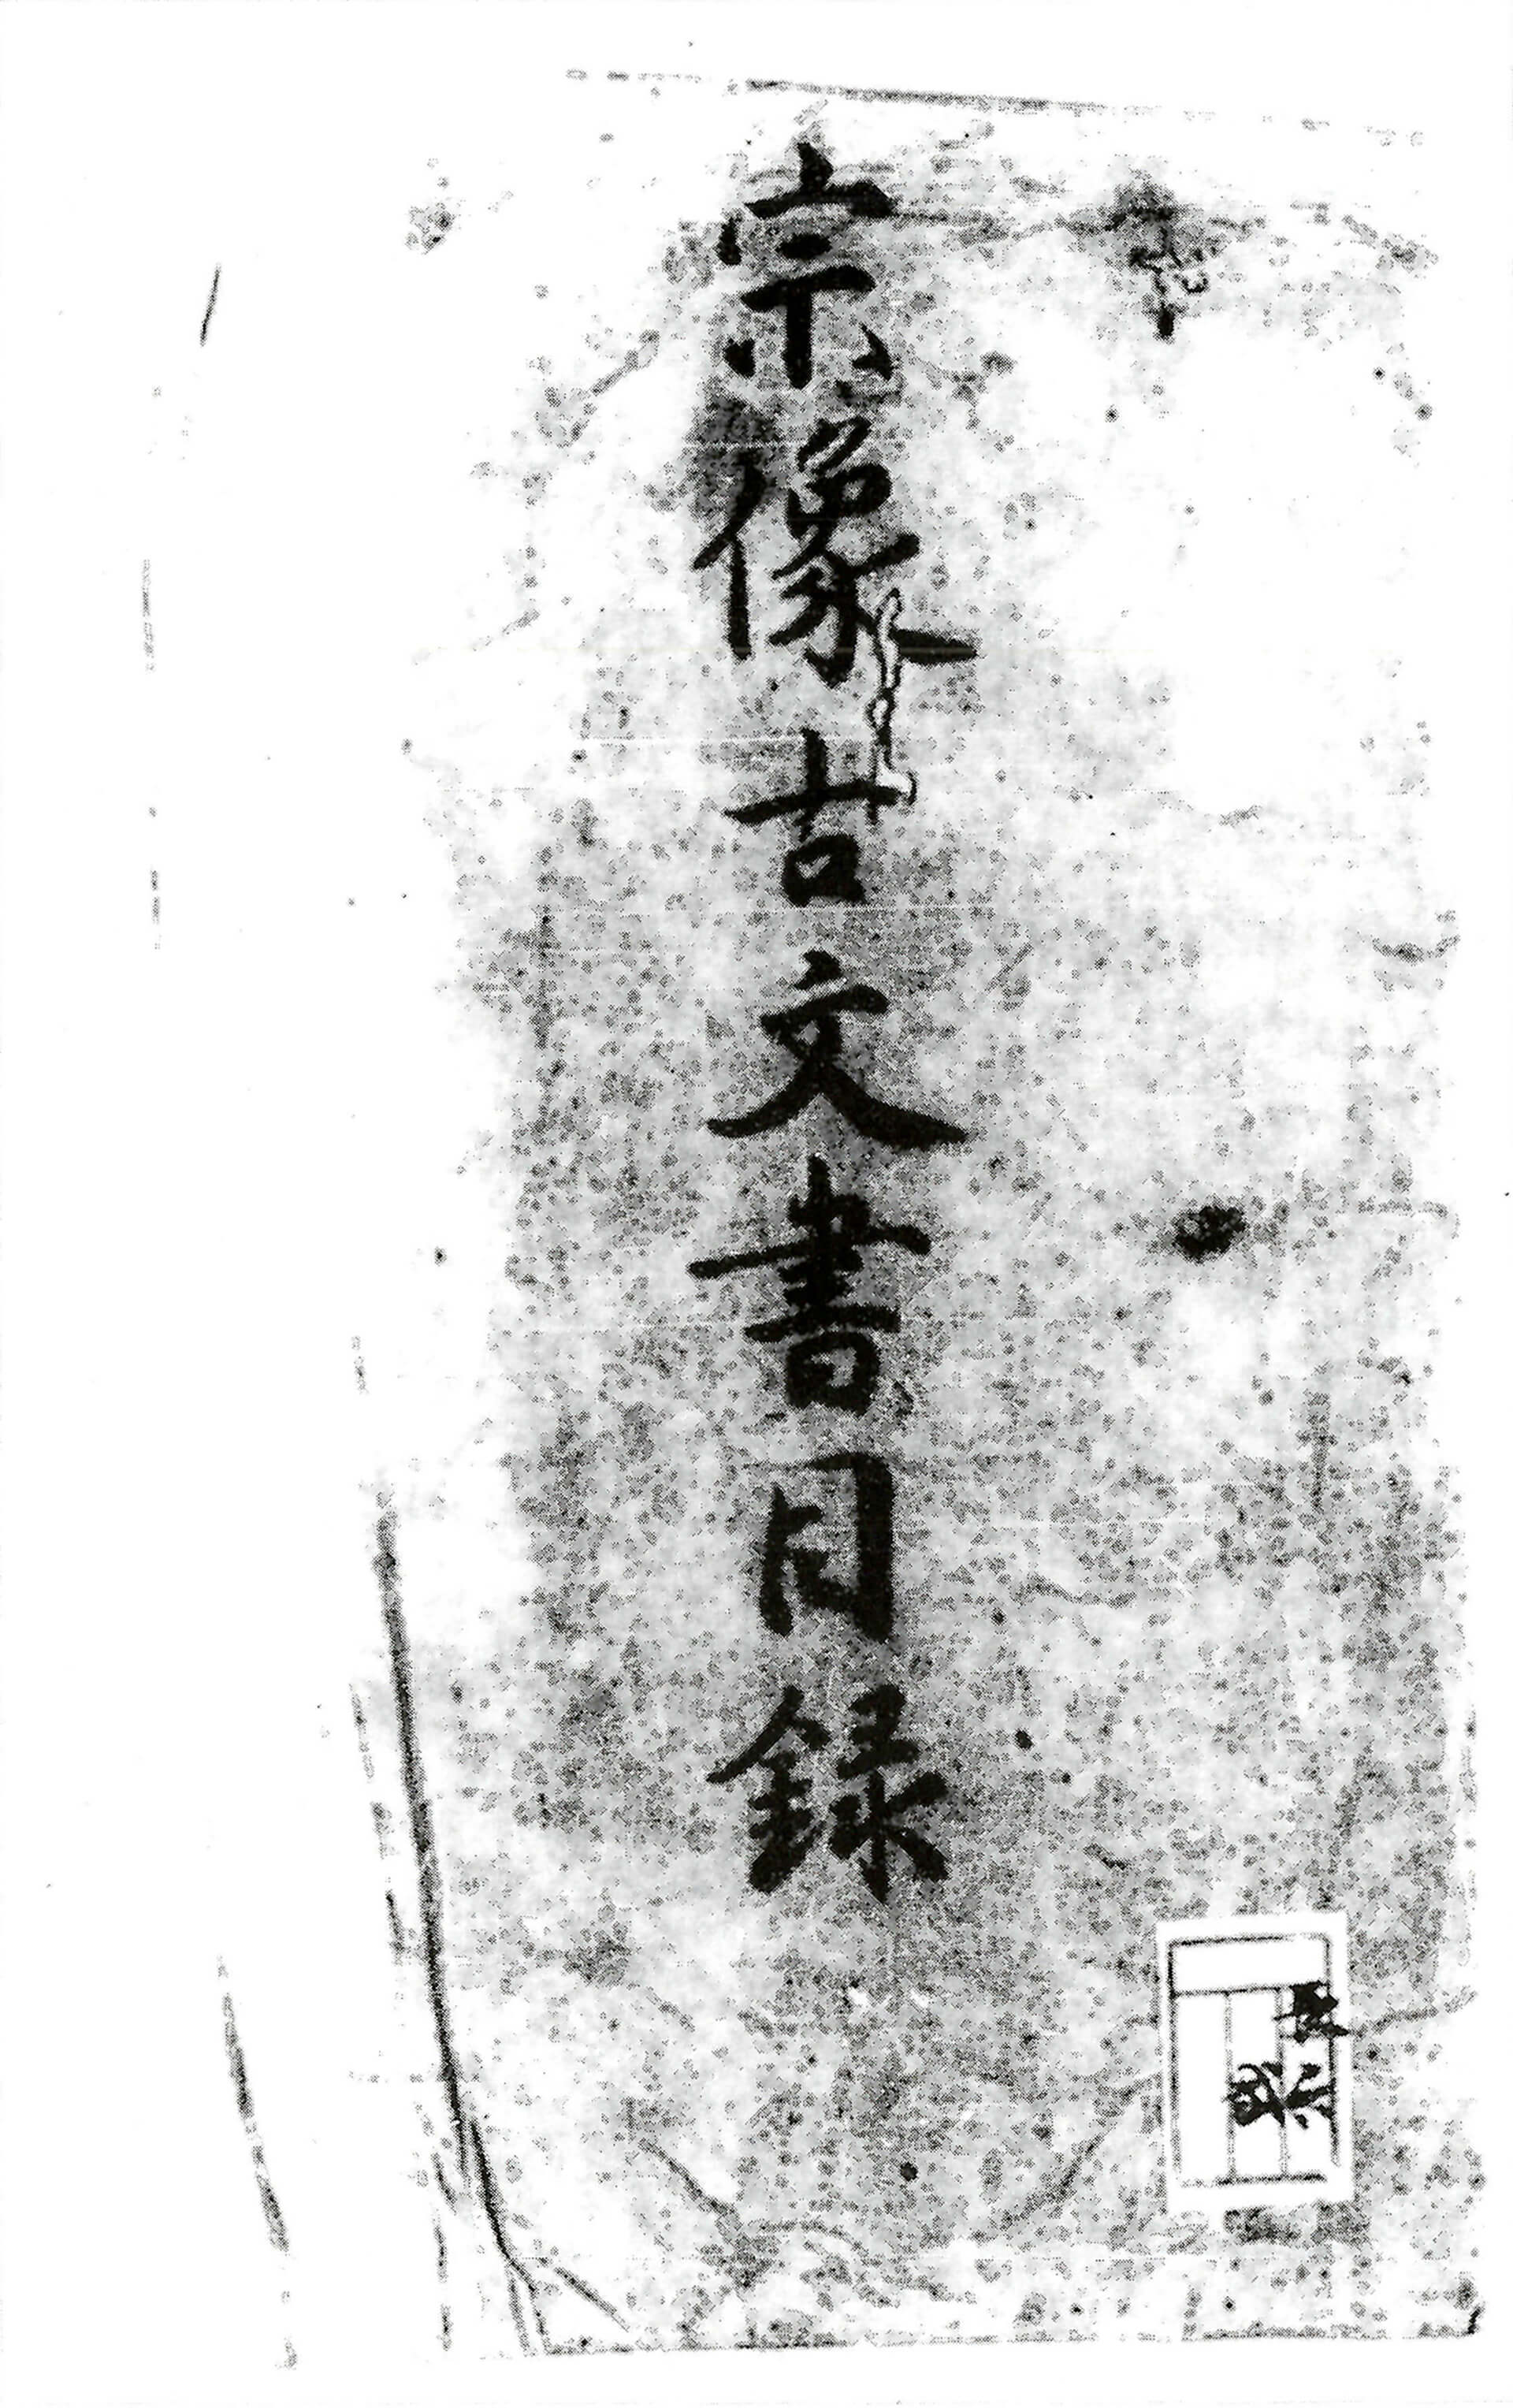 宗像古文書目録